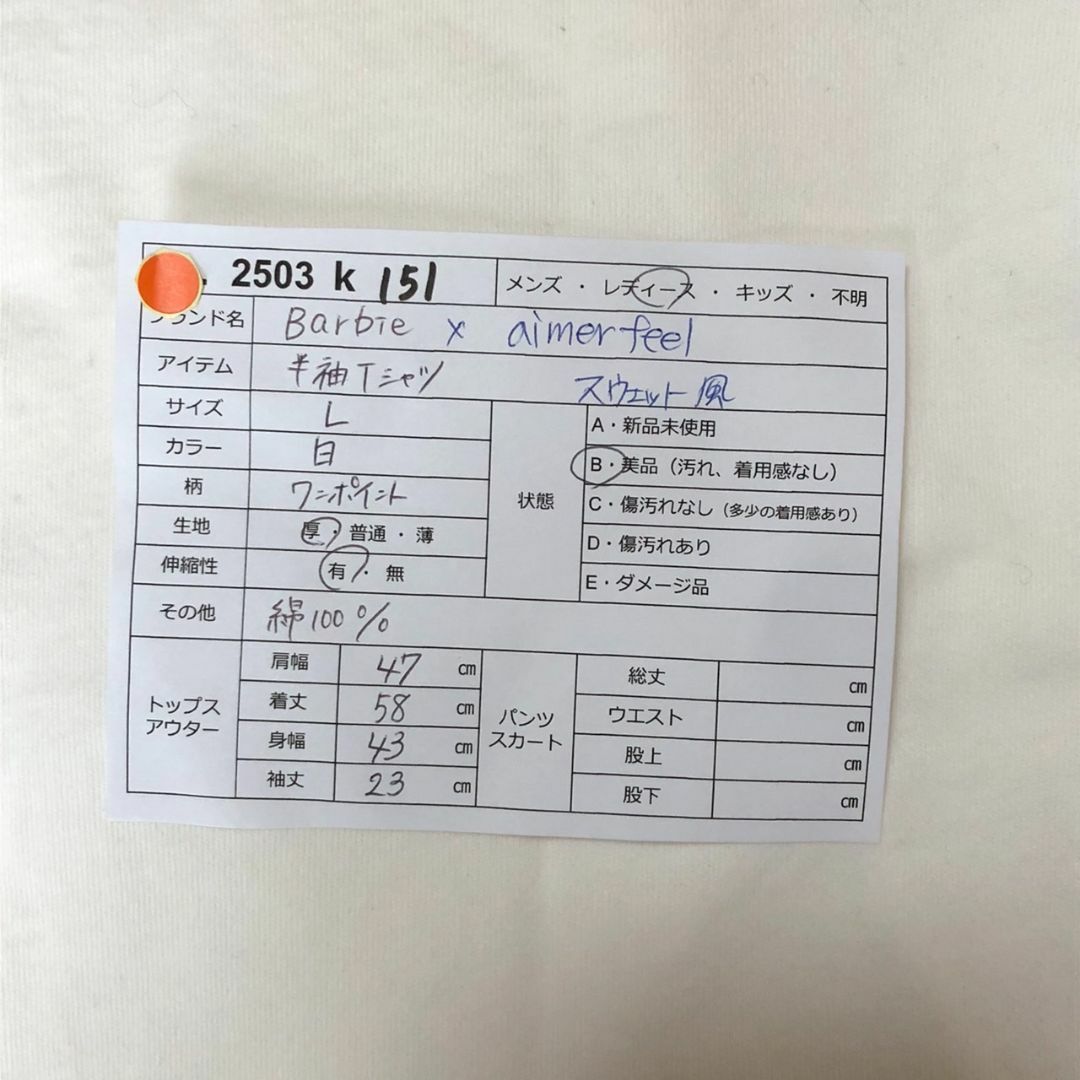 2503 k 151 メンズ ・ レディース ・ キッズ ・ 不明
ブランド名 Barbie x aimer feel
アイテム 半袖Tシャツ スウェット風
サイズ L
カラー 白
柄 ワンポイント
生地 厚・普通・薄
伸縮性 有・無
状態
A・新品未使用
B・美品(汚れ、着用感なし)
C・傷汚れなし(多少の着用感あり)
D・傷汚れあり
E・ダメージ品
その他 綿100%
トップス
アウター
肩幅 47 cm
着丈 58 cm
身幅 43 cm
袖丈 23 cm
パンツ
スカート
総丈 cm
ウエスト cm
股上 cm
股下 cm